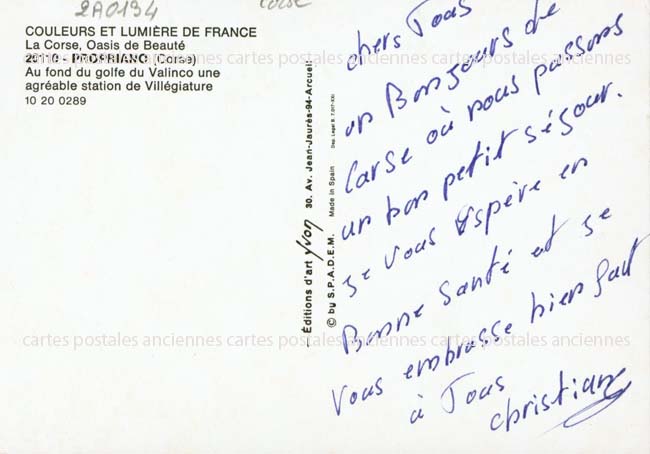 2A0194
Corse
COULEURS ET LUMIÈRE DE FRANCE
La Corse, Oasis de Beauté
20110 - PROPRIANO (Corse)
Au fond du golfe du Valinco une
agréable station de Villégiature
10 20 0289
— Éditions d'art yvon 30. Av. Jean-Jaurès-94-Arcueil
© by S.P.A.D.E.M. Made in Spain
chers Tous
un Bonjours de
Carse où nous passons
un bon petit séjour.
je vous espère en
Bonne Santé et je
vous embrasse bien fait
à Tous
christiane
cartes postales anciennes cartes postales anciennes cartes postales anciennes
cartes postales anciennes cartes postales anciennes cartes postales anciennes